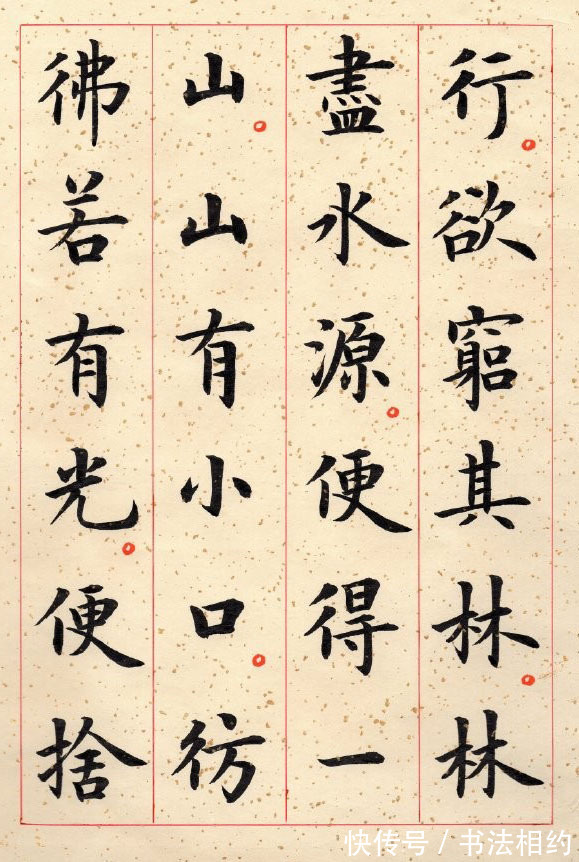 行欲窮其林林
盡水源便得一
山山有小口彷
彿若有光便捨
快传号 / 书法相约